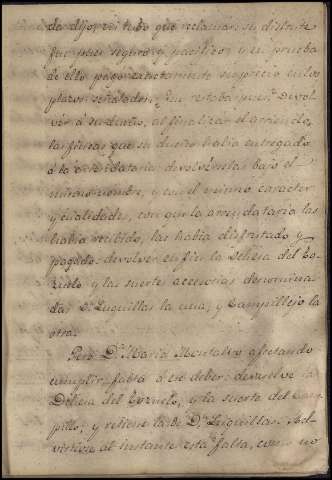 de dijo; ni tubo que reclamar; su disfrute
fue pues seguro y pacifico; y en prueba
de ello pagó exactamente su precio en los
plazos señalados. Su restaba pues devol-
ver á su dueño, al finalizar el arriendo,
las fincas que su dueño habia entregado
á la arrendataria: devolverselas bajo el
mismo nombre, y con el mismo caracter
y cualidades, con que la arrendataria las
habia recibido, las habia disfrutado y
pagado: devolver en fin la Dehesa del Co-
zuelo y las suertes accesorias denomina-
das Dª Luquillas la una, y Campillejo la
otra.
Pero Dª Maria Montalvo afectando
cumplir, falta á ese deber: devuelve la
Dehesa del Cozuelo, y la suerte del Cam-
pillo; y retiene la de Dª Luquillas. Ad-
virtiose al instante esta falta, como no